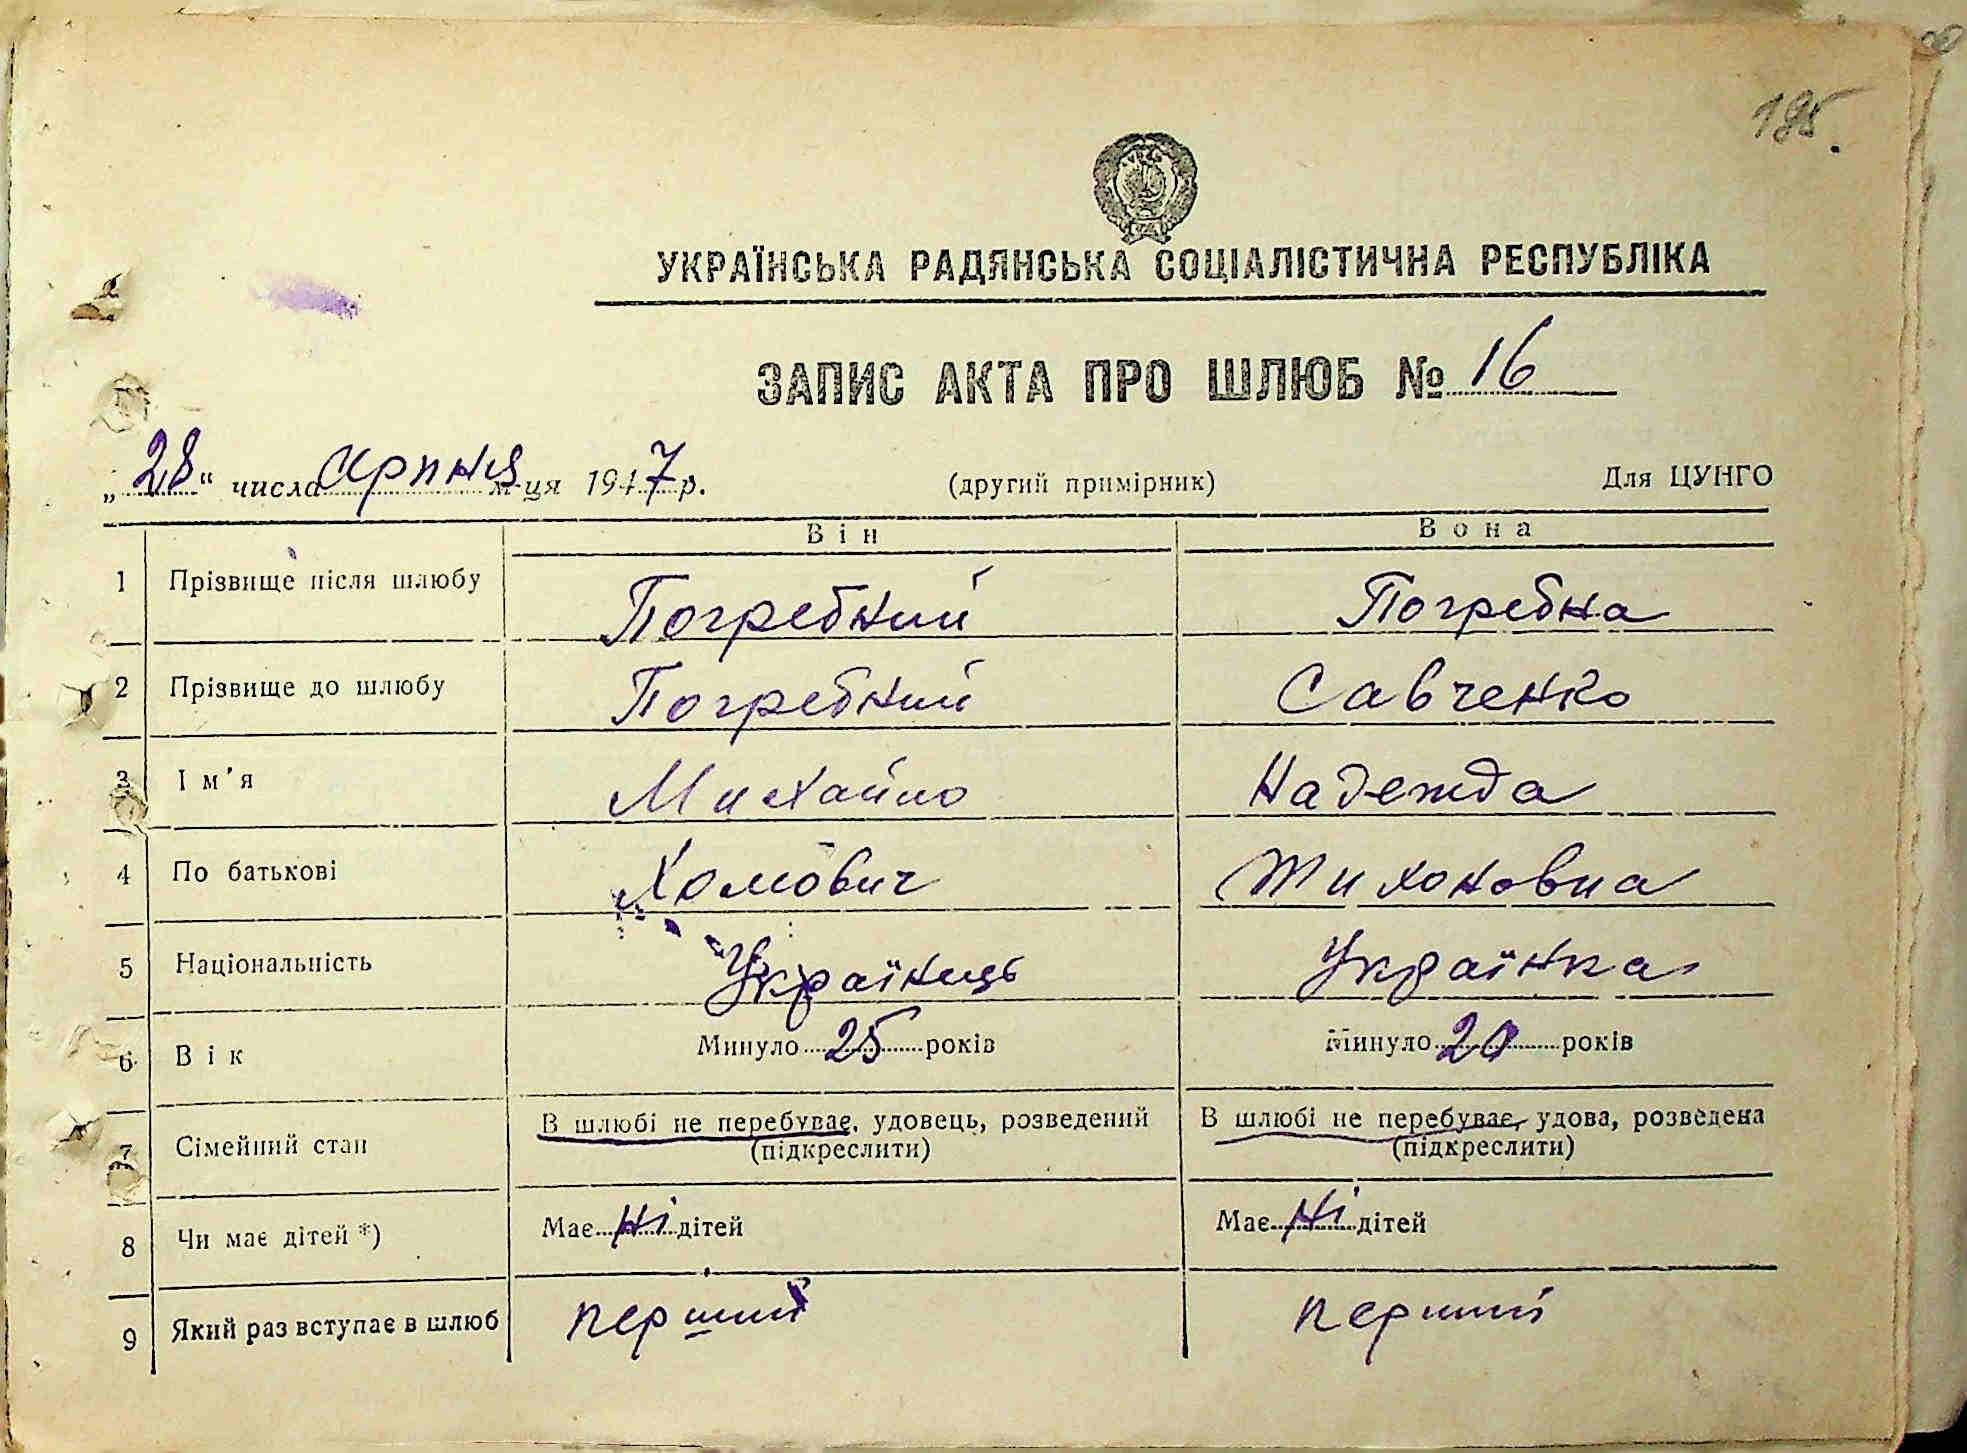 195.
УКРАЇНСЬКА РАДЯНСЬКА СОЦІАЛІСТИЧНА РЕСПУБЛІКА
ЗАПИС АКТА ПРО ШЛЮБ № 16
„28“ числа Серпня м-ця 1947 р. (другий примірник) Для ЦУНГО
Він Вона
1 Прізвище після шлюбу Погребний Погребна
2 Прізвище до шлюбу Погребний Савченко
3 Ім'я Михайло Надежда
4 По батькові Хомович Тихоновна
5 Національність Українець Українка
6 Вік Минуло 25 років Минуло 20 років
7 Сімейний стан В шлюбі не перебуває, удовець, розведений В шлюбі не перебуває, удова, розведена
(підкреслити) (підкреслити)
8 Чи має дітей *) Має ні дітей Має ні дітей
9 Який раз вступає в шлюб перший перший